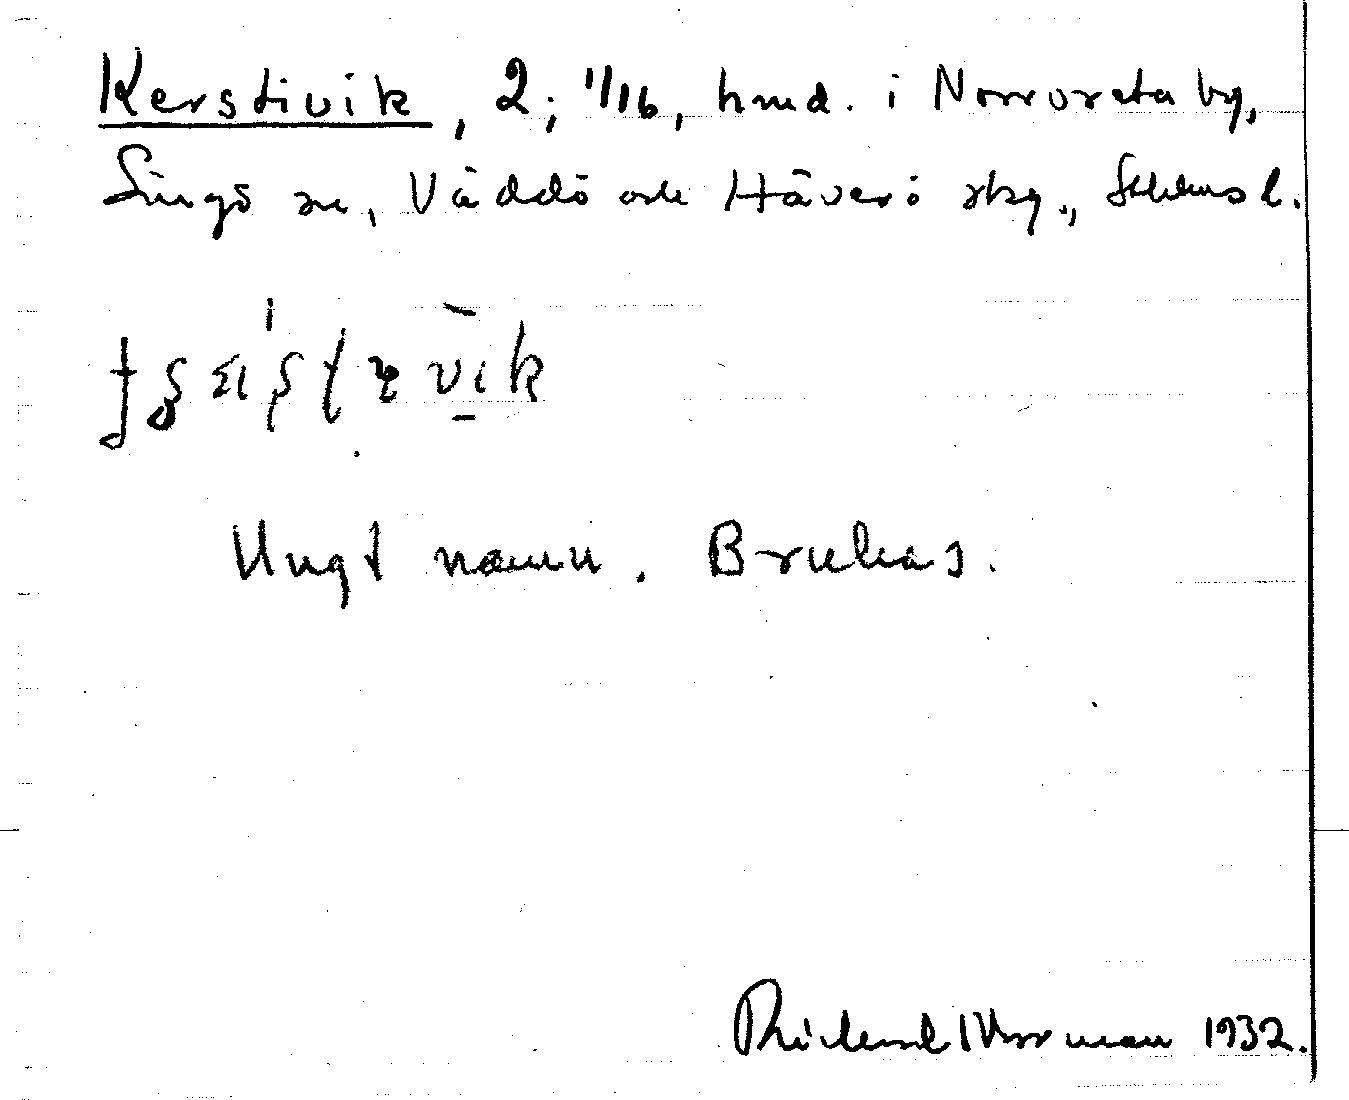 Kerstivik, 2; 1/16, hmd. i Norrvreta by,
Singö sn, Väddö och Häverö skg., Sthlms l.
vik
Ungt namn. Brukas.
Rickard Norrman 1932.